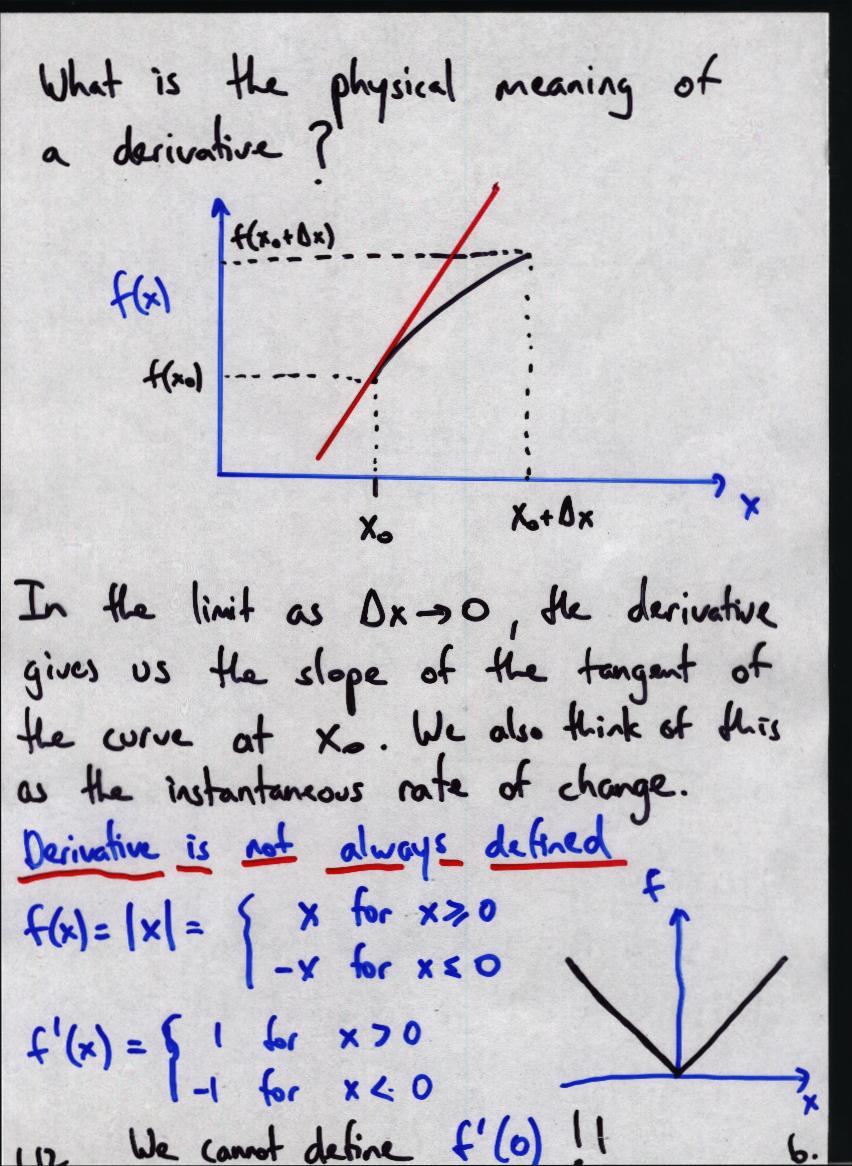 What is the physical meaning of
a derivative?
f(x₀+Δx)
f(x)
f(x₀)
x
x₀
x₀+Δx
In the limit as Δx→0, the derivative
gives us the slope of the tangent of
the curve at x₀. We also think of this
as the instantaneous rate of change.
Derivative is not always defined
f
f(x) = |x| = { x for x ≥ 0
-x for x ≤ 0
f'(x) = { 1 for x > 0
-1 for x < 0
x
We cannot define f'(0) !!
6.